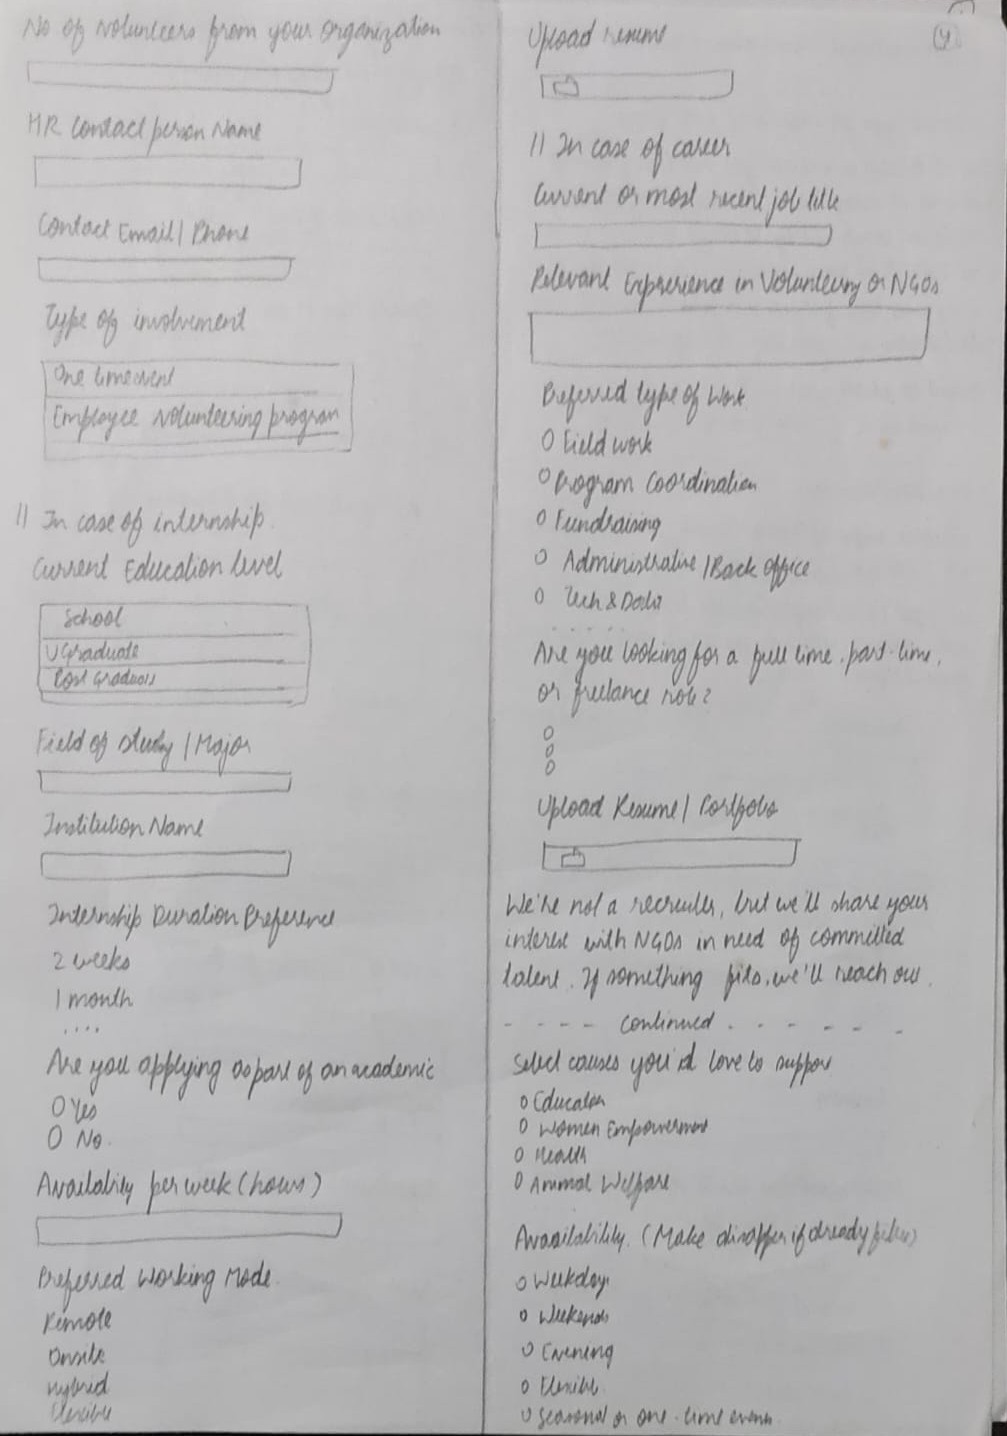 No of volunteers from your organization
HR Contact person Name
Contact Email / Phone
Type of involvment
One time event
Employee volunteering program
// In case of internship
Current Education level
School
UGraduate
Post Graduate
Field of study / Major
Institution Name
Internship Duration Preference
2 weeks
1 month
....
Are you applying as part of an academic
Yes
No
Availability per week (hours)
Preferred Working Mode
Remote
Onsite
Hybrid
Flexible
4
Upload resume
// In case of career
Current or most recent job title
Relevant Experience in Volunteering or NGOs
Preferred type of Work
Field work
Program Coordination
Fundraising
Administrative / Back office
Tech & Data
.....
Are you looking for a full time, part-time,
or freelance role?
Upload Resume / Portfolio
We're not a recruiter, but we'll share your
interest with NGOs in need of committed
talent. If something fits, we'll reach out.
- - - - Continued - - - - - -
Select causes you'd love to support
Education
Women Empowerment
Health
Animal Welfare
Availability. (Make disapper if already filled)
Weekday
Weekends
Evening
Flexible
Seasonal or one-time events